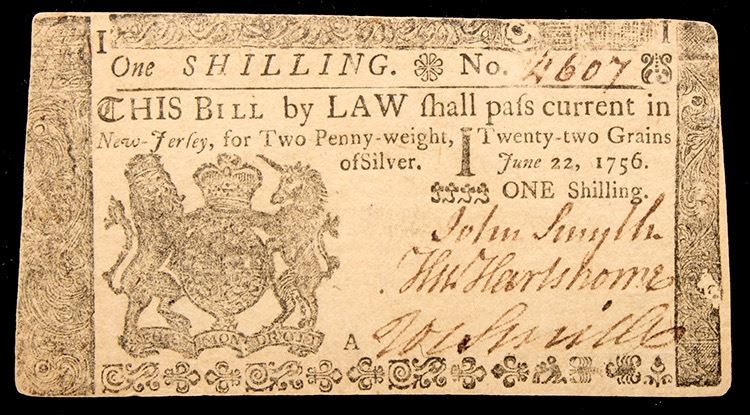 I I
One SHILLING. No. 4607
THIS BILL by LAW ſhall paſs current in
New-Jerſey, for Two Penny-weight, I Twenty-two Grains
of Silver. June 22, 1756.
ONE Shilling.
John Smyth
Hartshorne
DIEU ET MON DROIT
A